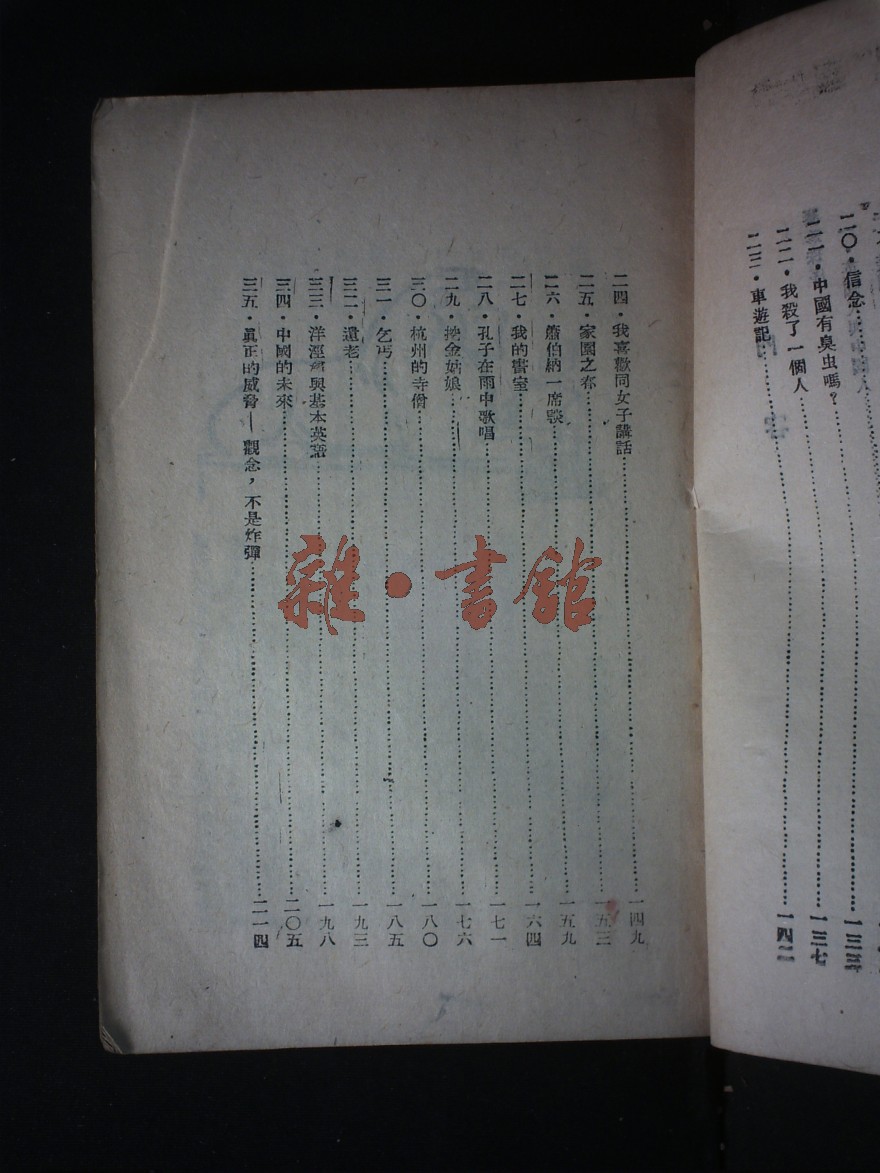 二〇・信念
二一・中國有臭虫嗎？……一三七
二二・我殺了一個人
二三・車遊記……一四二
二四・我喜歡同女子講話……一四九
二五・家園之春……一五三
二六・蕭伯納一席談……一五九
二七・我的書室……一六四
二八・孔子在雨中歌唱……一七一
二九・挖金姑娘……一七六
三〇・杭州的寺僧……一八〇
三一・乞丐……一八五
三二・遺老……一九三
三三・洋涇浜與基本英語……一九八
三四・中國的未來……二〇五
三五・眞正的威脅——觀念，不是炸彈……二一四
雜・書館